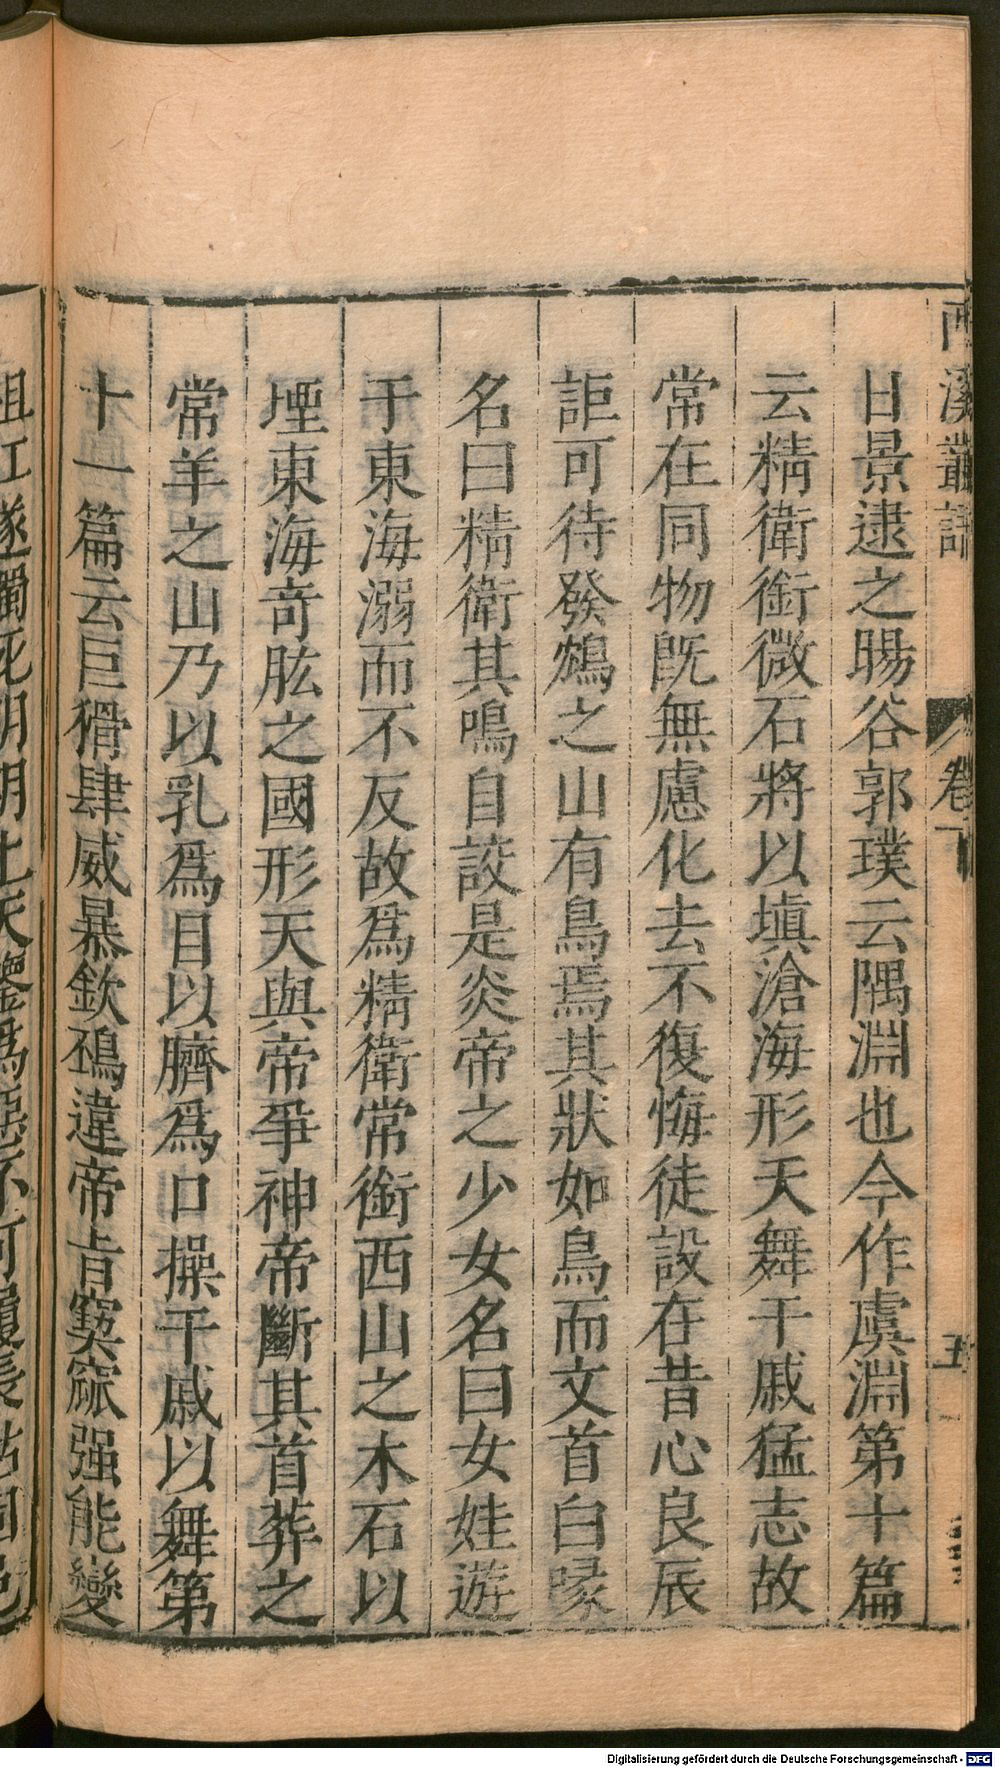 西溪叢語
卷下
五
日景逮之暘谷郭璞云隅淵也今作虞淵第十篇
云精衛銜微石將以塡滄海形天舞干戚猛志故
常在同物旣無慮化去不復悔徒設在昔心良辰
詎可待發鳩之山有鳥焉其狀如鳥而文首白喙
名曰精衛其鳴自詨是炎帝之少女名曰女娃遊
于東海溺而不反故爲精衛常銜西山之木石以
堙東海奇肱之國形天與帝爭神帝斷其首葬之
常羊之山乃以乳爲目以臍爲口操干戚以舞第
十一篇云巨猾肆威暴欽䲹違帝旨窫窳强能變
祖江遂獨死明明上天鑒爲惡不可履長
Digitalisierung gefördert durch die Deutsche Forschungsgemeinschaft - DFG